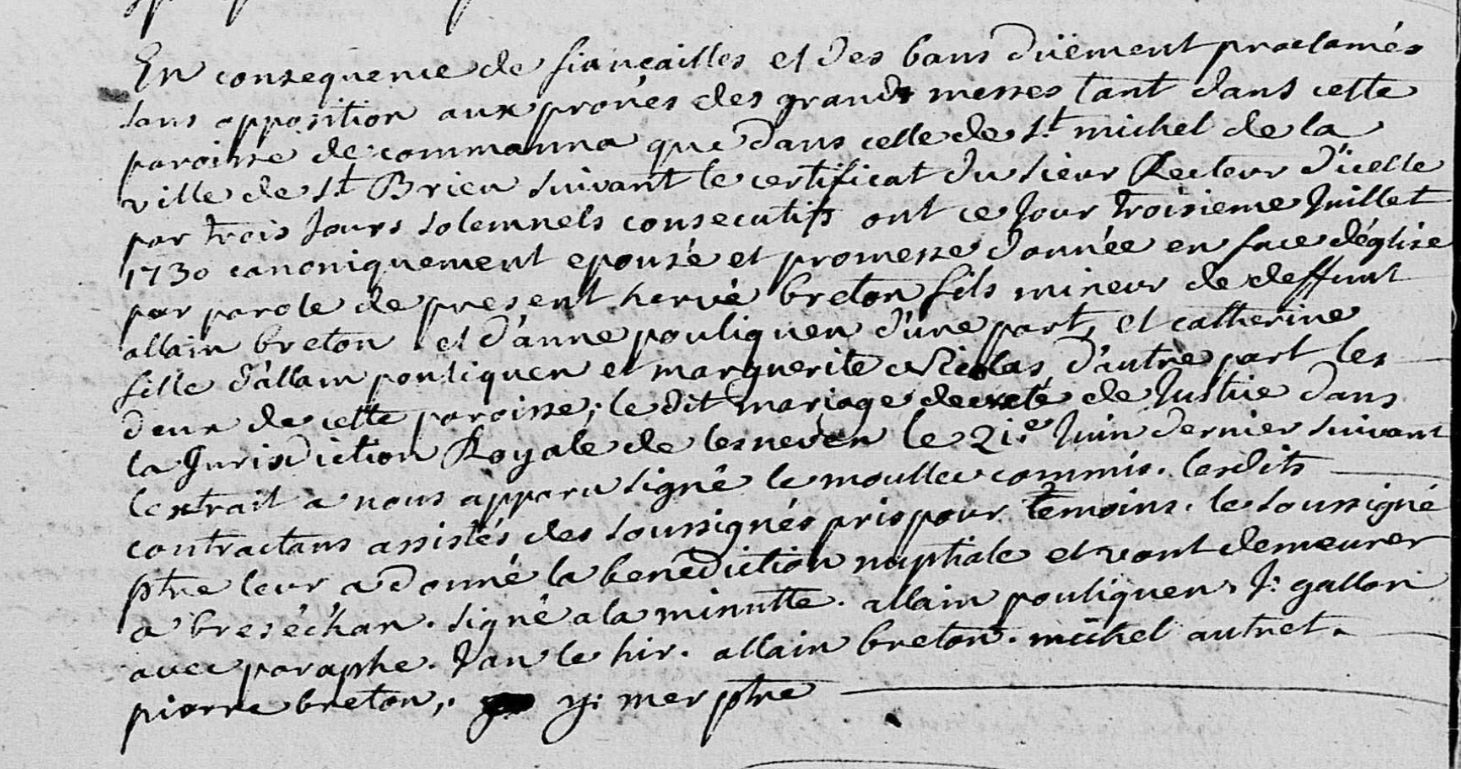 En consequence de fiançailles et des bans düëment proclamés
sans opposition aux prones des grands messes tant dans cette
paroisse de commanna que dans celle de st michel de la
ville de st Brieu suivant le certificat du sieur Recteur d'icelle
par trois jours solemnels consecutifs ont ce jour troisieme juillet
1730 canoniquement epousé et promesse donnée en face d'église
par parole de present hervé breton fils mineur de deffunt
allain breton et d'anne pouliquen d'une part, et catherine
fille d'allain pouliquen et marguerite Nicolas d'autre part les
deux de cette paroisse; le dit mariage decreté de justice dans
la jurisdiction Royale de lesneven le 21.e juin dernier suivant
l'extrait a nous apparu signé le moullec commis. lesdits
contractans assistés des soussignés pris pour temoins. le soussigné
ptre leur a donné la benediction nuptiale et vont demeurer
a breséhan. signé a la minutte. allain pouliquen. J: gallon
avec paraphe. Jan le hir. allain breton. michel autret.
pierre breton,. y: mer ptre